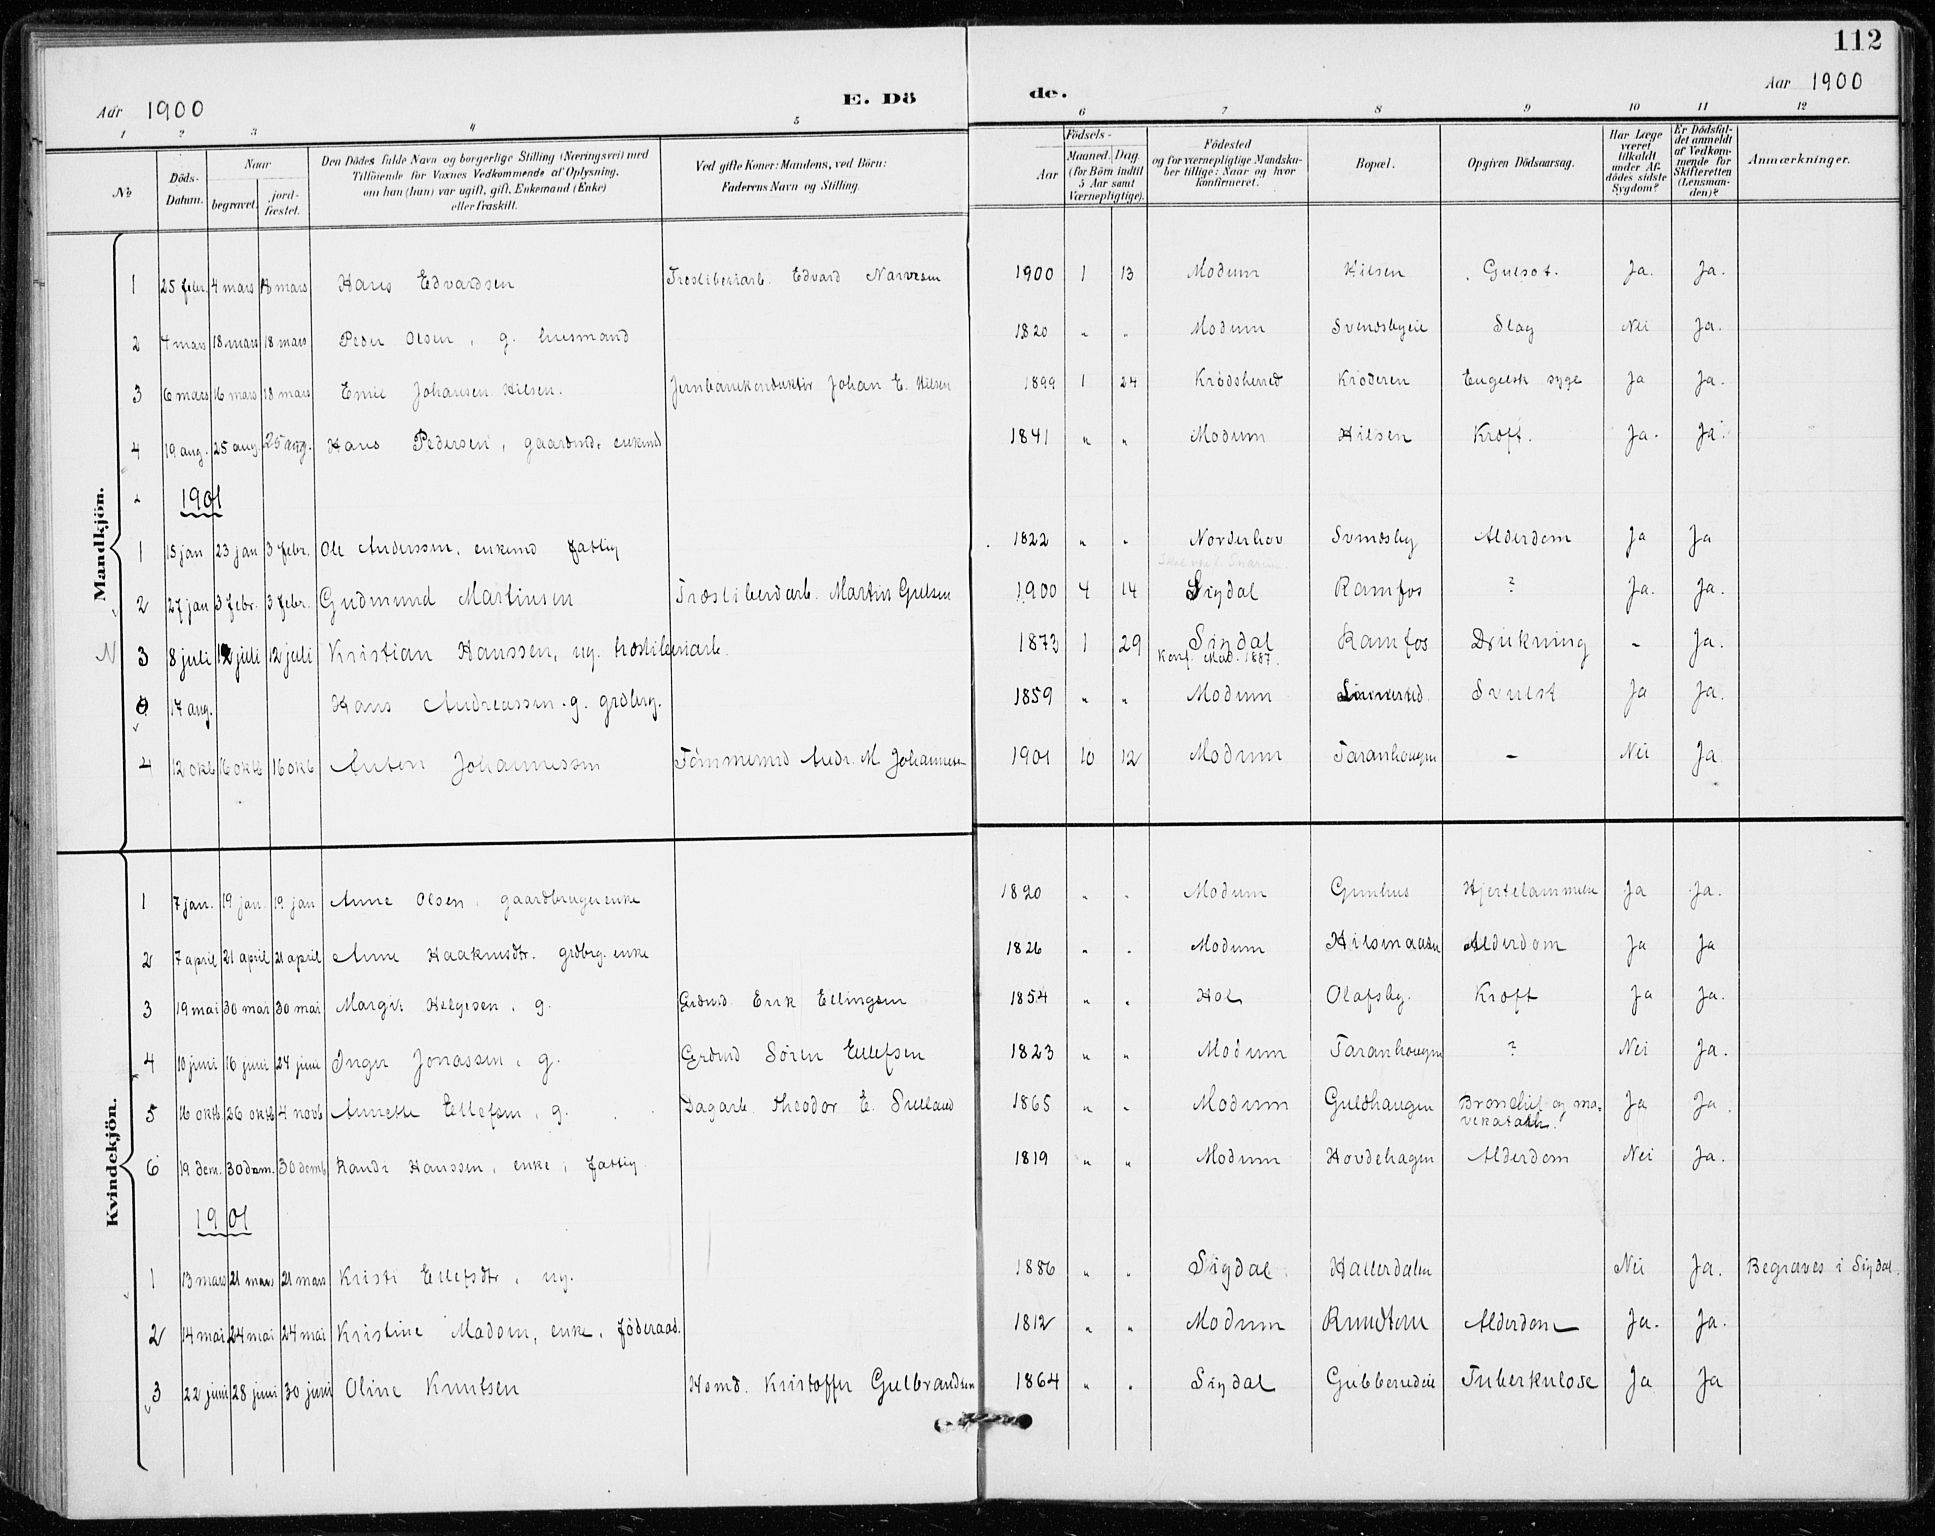 112
Aar 1900 E. Dö de. Aar 1900
1 2 3 4 5 6 7 8 9 10 11 12
No Döds-Datum. Naar begravet. jord-fæstet. Den Dödes fulde Navn og borgerlige Stilling (Næringsvei) med Tilföiende for Voxnes Vedkommende af Oplysning, om han (hun) var ugift, gift, Enkemand (Enke) eller fraskilt. Ved gifte Koner: Mandens, ved Börn: Faderens Navn og Stilling. Födsels- Aar Maaned. Dag. (for Börn indtil 5 Aar samt Værnepligtige). Födested og for værnepligtige Mandskaber tillige: Naar og hvor konfirmeret. Bopæl. Opgiven Dödsaarsag. Har Læge været tilkaldt under Afdödes sidste Sygdom? Er Dödsfaldet anmeldt af Vedkommende for Skifteretten (Lensmanden)? Anmærkninger.
Mandkjön.
1 25 febr. 4 mars 18 mars Hans Edvardsen Træsliberiarb. Edvard Narvesen 1900 1 13 Modum Hilsen Gulsot. Ja. Ja.
2 4 mars 18 mars 18 mars Peder Olsen, g. husmand 1820 " " Modum Svendsbyeie Slag Nei Ja.
3 6 mars 16 mars 18 mars Emil Johansen Hilsen. Jernbanekonduktør Johan E. Hilsen 1899 1 24 Krødsherred Krøderen Engelsk syge Ja Ja.
4 19 aug. 25 aug. 25 aug. Hans Pedersen, gaardmd. enkemd 1841 " " Modum Hilsen Kræft. Ja. Ja.
1901
1 15 jan 23 jan 3 febr. Ole Anderssen, enkemd fattig 1822 " " Norderhov Svendsby Alderdom Ja Ja
2 27 jan 3 febr. 3 febr. Gudmund Martinsen Træsliberiarb. Martin Gulsen 1900 4 14 Sigdal Ramfos ? Ja. Ja.
N 3 8 juli 12 juli 12 juli Kristian Hanssen, ug. træsliberiarb. 1873 1 29 Sigdal Ramfos Drukning - Ja.
Konf. Mod. 1887.
17 aug. Hans Andreassen. g. grdbrg. 1859 " " Modum Svulst Ja Ja.
4 12 oktb 16 oktb 16 oktb Anton Johannessen Tømmermd Andr. M. Johannesen 1901 10 12 Modum Taranhougen - Nei Ja
Kvindekjön.
1 7 jan. 19 jan. 19 jan Anne Olsen, gaardbrugerenke 1820 " " Modum Gunhus Hjertelammelse Ja Ja.
2 7 april 21 april 21 april Anne Haakensdtr. grdbrg. enke 1826 " " Modum Hilsenaasen Alderdom Ja Ja
3 19 mai 30 mai 30 mai Margit Helgesen, g. Grdmd. Erik Ellingsen 1854 " " Hol Olafsby. Kræft Ja Ja.
4 10 juni 16 juni 24 juni Inger Jonassen, g. Grdmd Søren Ellefsen 1823 " " Modum Taranhougen ? Nei Ja.
5 16 oktb 26 oktb 4 novb Annette Ellefsen, g. Dagarb. Theodor E. Sulland 1865 " " Modum Guldhaugen Bronchit og ma- Ja Ja.
vekatarh.
6 19 dem. 30 dem. 30 demb Randi Hanssen, enke, fattig. 1819 " " Modum Hovdehagen Alderdom Nei Ja.
1901
1 13 mars 21 mars 21 mars Kristi Ellefsdtr, ug. 1886 " " Sigdal Hallerdalen Nei Ja. Begraves i Sigdal.
2 14 mai 24 mai 24 mai Kristine Madsen, enke, føderaad. 1812 " " Modum Rundtom Alderdom Ja. Ja.
3 22 juni 28 juni 30 juni Oline Knutsen Hsmd. Kristoffer Gulbrandsen 1864 " " Sigdal Gubberudeie Tuberkulose Ja Ja